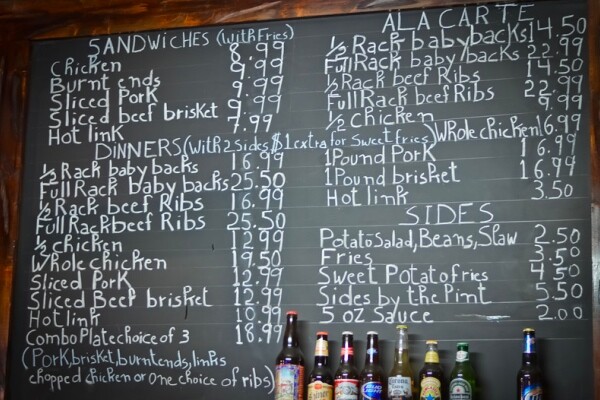 SANDWICHES (with Fries)
Chicken 8.99
Burnt ends 9.99
Sliced Pork 9.99
Sliced beef brisket 9.99
Hot link 7.99
DINNERS (with 2 sides $1 extra for sweet fries)
½ Rack baby backs 16.99
Full Rack baby backs 25.50
½ Rack beef Ribs 16.99
Full Rack beef Ribs 25.50
½ chicken 12.99
Whole chicken 19.50
Sliced Pork 12.99
Sliced Beef brisket 12.99
Hot link 10.99
Combo Plate choice of 3 18.99
(Pork, brisket, burnt ends, links
chopped chicken or one choice of ribs)
ALA CARTE
½ Rack baby backs 14.50
Full Rack baby backs 22.99
½ Rack beef Ribs 14.50
Full Rack beef Ribs 22.99
½ chicken 9.99
Whole chicken 16.99
1 Pound Pork 16.99
1 Pound brisket 16.99
Hot link 3.50
SIDES
Potato Salad, Beans, Slaw 2.50
Fries 3.50
Sweet Potato fries 4.50
Sides by the Pint 5.50
5 oz Sauce 2.00
Corona